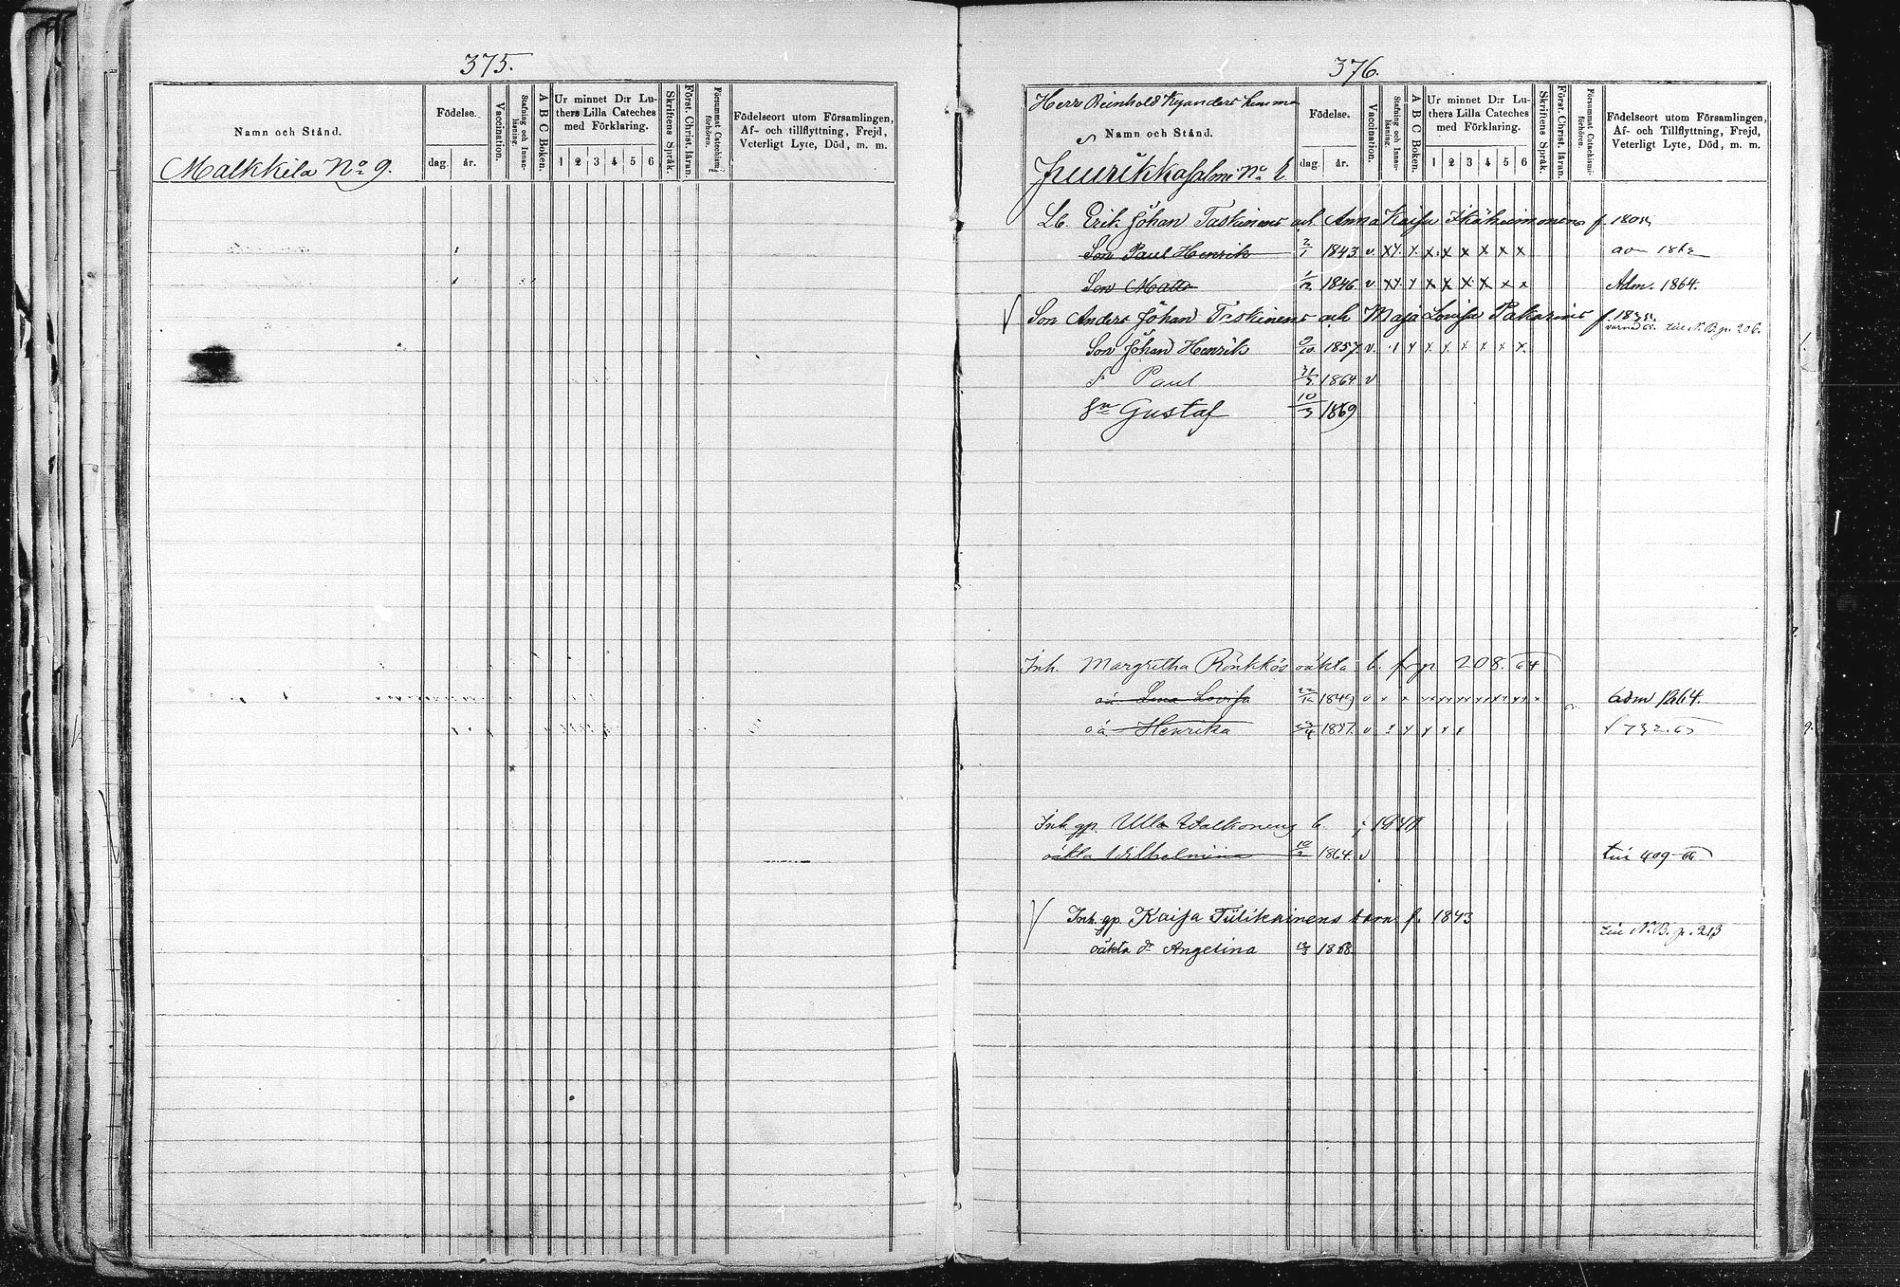 375.
Namn och Stånd.
Födelse.
dag. år.
Vaccination.
Stafning och Innanläsning.
A B C Boken.
Ur minnet D:r Luthers Lilla Cateches med Förklaring.
1 2 3 4 5 6
Skriftens Språk.
Först. Christ. läran.
Försummat Catechismiförhören.
Födelseort utom Församlingen,
Af- och tillflyttning, Frejd,
Veterligt Lyte, Död, m. m.
Malkkila No 9.
376.
Herr Reinhold Kyanders hemma
Namn och Stånd.
Födelse.
dag. år.
Vaccination.
Stafning och Innanläsning.
A B C Boken.
Ur minnet D:r Luthers Lilla Cateches med Förklaring.
1 2 3 4 5 6
Skriftens Språk.
Först. Christ. läran.
Försummat Catechismiförhören.
Födelseort utom Församlingen,
Af- och Tillflyttning, Frejd,
Veterligt Lyte, Död, m. m.
No
Lb. Erik Johan Taskinens och Anna Kaisa
Son Paul Henrik 2/1 1843 v x x x x x x
Son Matts 1846 v x x x x x x Adm. 1864.
Son Anders Johan Taskinens och Maja Lovisa Pakarines f.
N.B. p. 206.
Son Johan Henrik 9/10 1857 v. x x x x x x
Paul 1864 v
Sn Gustaf 10/3 1869
Inh. Margretha Rönkkös oäkta b. 208. 64
oä. Lena Lovisa 1849 v adm 1864.
oä Henrika 1857. v x x x x
Inh. gp. Ulla Walkonens b.
oäkta Wilhelmina 1864. v 409
Inh. gp. Kaisa Tulikainens barn f. 1843
oäkta dr Angelina 1868 N.B. p. 213